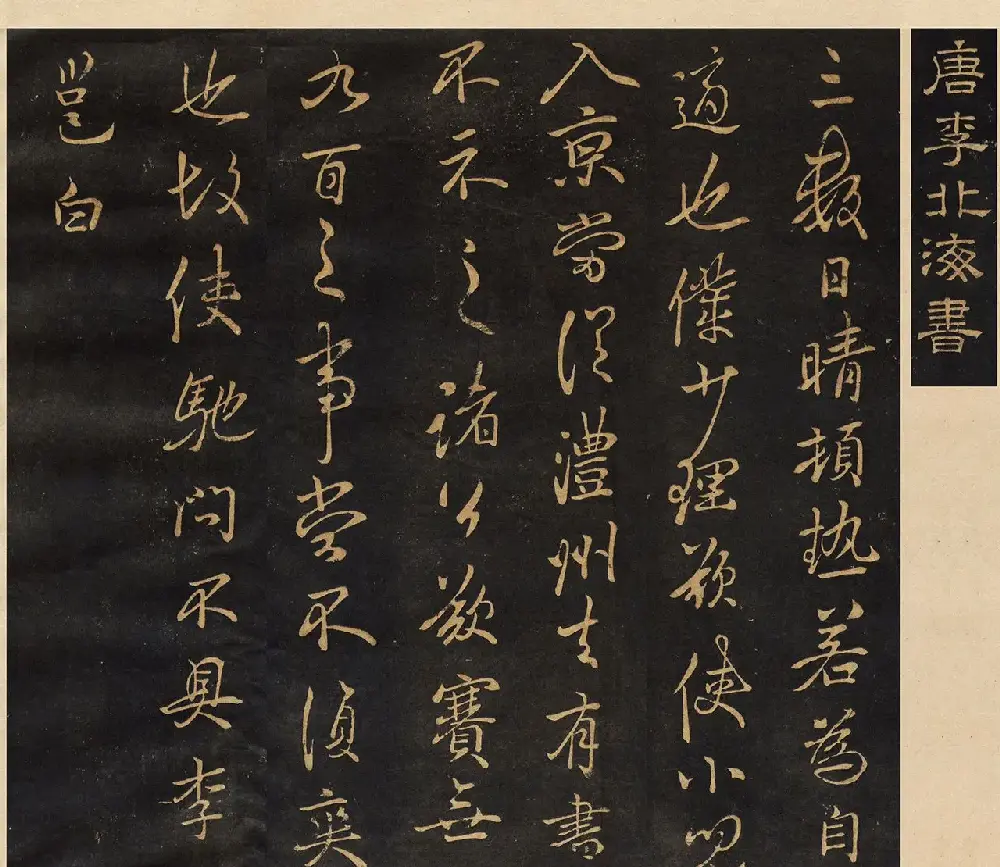 唐李北海書
三數日晴頓熱若為自
適也僕少理欲使小兒
入京當從澧州去有書
不示之諸公欲賽無
九百之事當不須爽
也故使馳問不具李
邕白